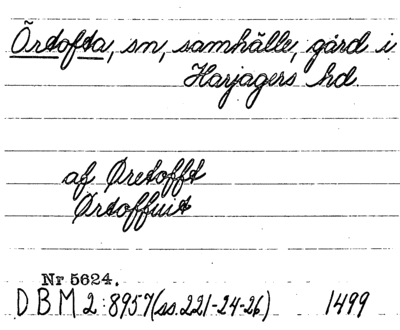 Örtofta, sn, samhälle, gård i
Harjagers hd.
af Øretofft
Ørtoffuit
Nr 5624.
D B M 2:8957 (ss. 221-24-26) 1499